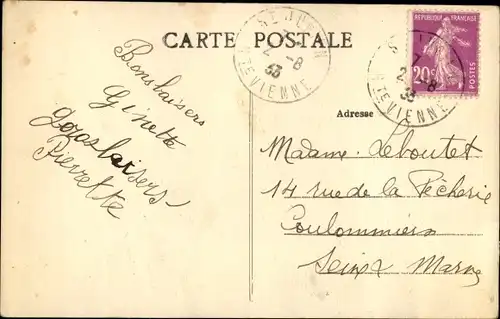 CARTE POSTALE
ST JUNIEN
2 -8
33
HTE VIENNE
REPUBLIQUE FRANÇAISE
20c
POSTES
2 -8
33
HTE VIENNE
Bons baisers
Ginette
Gros baisers
Pierrette
Adresse
Madame Leboutet
14 rue de la Pêcherie
Coulommiers
Seine & Marne